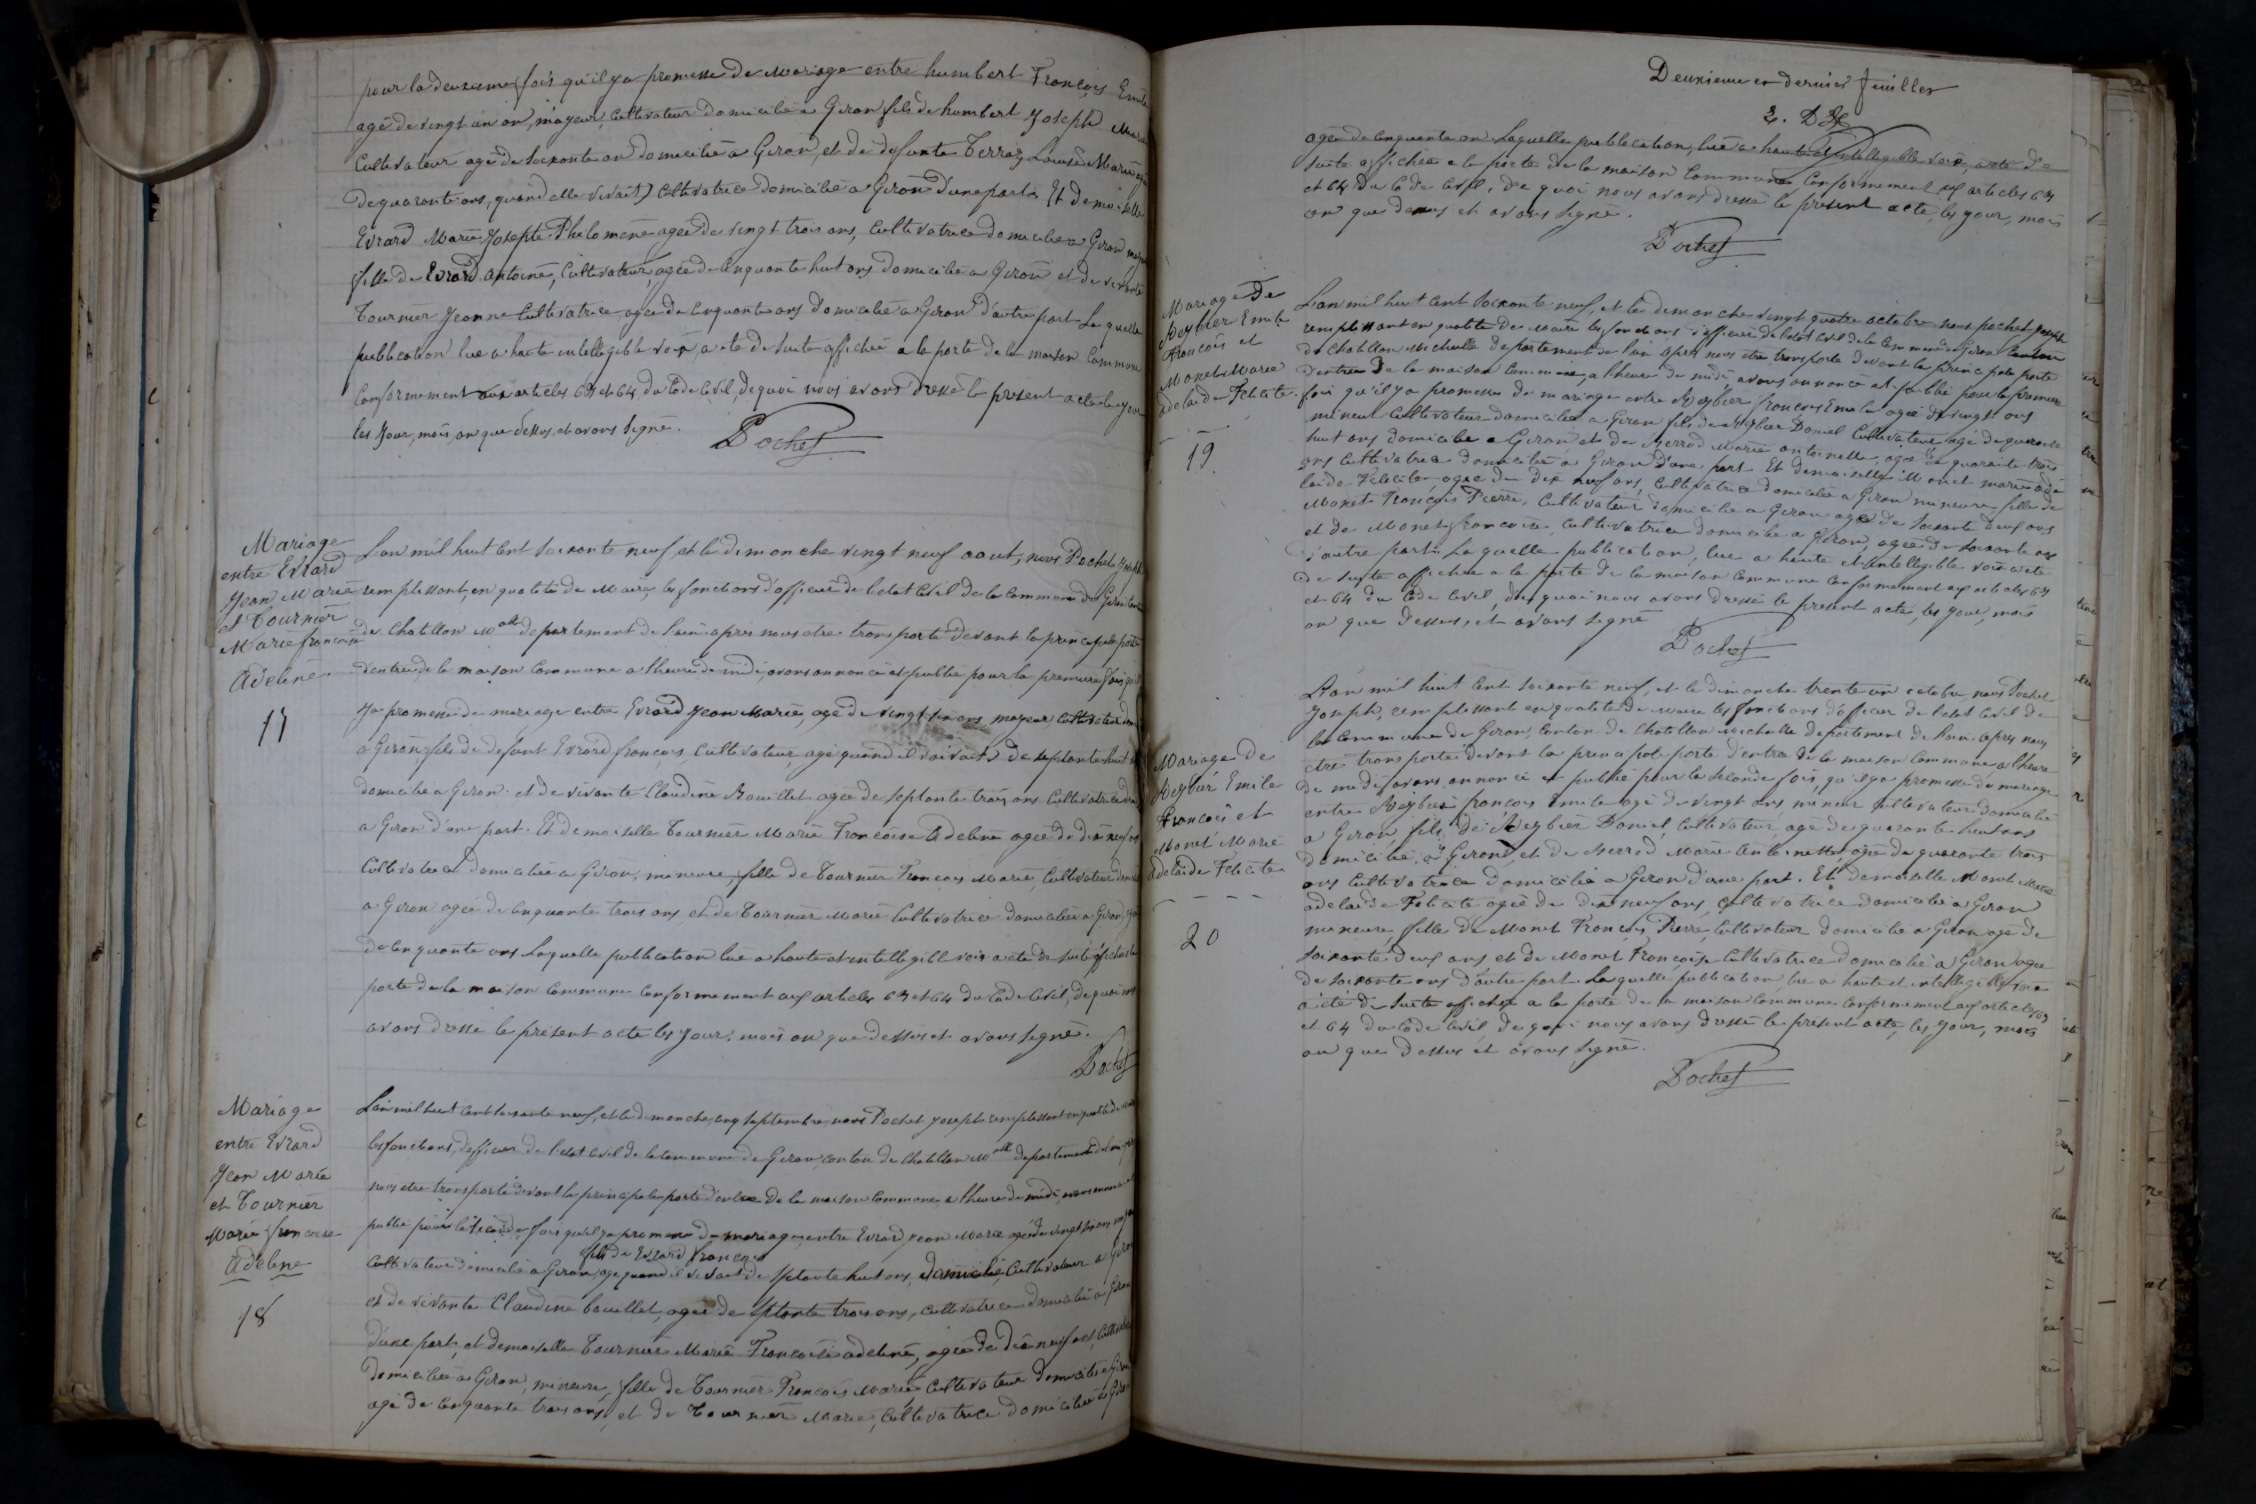 pour la deuxieme fois qu'il y a promesse de Mariage entre humbert François Emile
agé de vingt un an, majeur, Cultivateur domicilié a Giron fils de humbert Joseph Marie
Cultivateur agé de soixante an domicilié a Giron, et de defunte Terraz Louise Marie
de quarante ans, quand elle vivait) Cultivatrice domicilié a Giron d'une part. Et demoiselle
Evrard Marie Josephte Philomene agée de vingt trois ans, Cultivatrice domicilié a Giron
fille de Evrard Antoine, Cultivateur, agée de Cinquante huit ans domicilié a Giron et de vivante
Tournier Jeanne Cultivatrice agée de Cinquante ans domicilié a Giron d'autre part. La quelle
publication lue a haute intellegible voix, a ete de suite affichée a la porte de la maison Commune
Conformement aux articles 63 et 64 du Code Civil, de quoi nous avons dressé le present acte
les Jour, mois, an que dessus, et avons Signé.
Pochet
Mariage
entre Evrard
Jean Marie
et Tournier
Marie françoise
Adeline
17
L'an mil huit Cent soixante neuf, et le dimanche vingt neuf aout, nous Pochet Joseph
remplissant, en qualité de Maire, les fonctions d'officier de l'etat Civil de la Commune de Giron
de Chatillon M.alle departement de l'ain apres nous etre transporté devant la principale porte
d'entrée de la maison Commune a l'heure de midi, avons annoncé et publié pour la premiere fois
Ya promesse de mariage entre Evrard Jean Marie, agé de vingt six ans majeur Cultivateur
a Giron, fils de defunt Evrard françois Cultivateur, agé quand il vivait) de septante huit
domicilié a Giron. et de vivante Claudine Bouillet agée de septante trois ans Cultivatrice
a Giron d'une part. Et demoiselle Tournier Marie Françoise Adeline agée de dix neuf ans
Cultivatrice domicilié a Giron, mineure, fille de Tournier François Marie, Cultivateur
a Giron agée de Cinquante trois ans, et de Tournier Marie Cultivatrice domicilié a Giron,
de Cinquante ans Laquelle publication lue a haute et intellegible voix a ete de suite affichée
porte de la maison Commune Conformement aux articles 63 et 64 du Code Civil, de quoi
avons dressé le present acte les jour, mois an que dessus et avons signé.
Pochet
Mariage
entre Evrard
Jean Marie
et Tournier
Marie françoise
Adeline
18
L'an mil huit cent soixante neuf, et le dimanche, cinq septembre, nous Pochet joseph remplissant en qualité de
les fonctions, d'officier de l'etat Civil de la Commune de Giron canton de Chatillon M.alle departement de
nous etre transporté devant la principale porte d'entrée de la maison Commune a l'heure de midi,
publié pour la seconde fois qu'il ya promesse de mariage entre Evrard jean Marie agé de vingt six ans
fils de Evrard François
Cultivateur domicilié a Giron, agé quand il vivait de septante huit ans, domicilié, Cultivateur a Giron
et de vivante Claudine bouillet, agée de septante trois ans, Cultivatrice domicilié a Giron
d'une part, et demoiselle Tournier Marie Françoise adeline, agée de dix neuf ans,
domiciliée a Giron, mineure, fille de Tournier François Marie Cultivateur domicilié a Giron
agé de Cinquante trois ans, et de Tournier Marie, Cultivatrice domicilié a Giron
Deuxieme et dernier feuillet
agée de Cinquante an Laquelle publication, lue a haute et intellegible voix, a été de
suite affichée a la porte de la maison Commune Conformement aux articles 63
et 64 du Code Civil, de quoi nous avons dressé le present acte, les jour, mois
an que dessus et avons signé.
Pochet
Mariage de
Reybier Emile
François et
Monet Marie
adelaide Felicite.
19
L'an mil huit Cent soixante neuf, et le dimanche vingt quatre octobre nous pochet joseph
remplissant en qualité de Maire les fonctions d'officier de l'etat Civil de la Commune de Giron Canton
de Chatillon Michaille departement de l'ain apres nous etre transporté devant la principale porte
d'entrée de la maison Commune, a l'heure de midi, avons annoncé et publié pour la premiere
fois qu'il ya promesse de mariage entre Reybier françois Emile agé de vingt ans
mineur Cultivateur domicilié a Giron fils de Reybier Daniel Cultivateur agé de quarante
huit ans domicilié a Giron, et de Marie antoinette, agée de quarante trois
ans Cultivatrice domicilié a Giron d'une part. Et demoiselle Monet marie adé
laide Felicite agée de dix neuf ans, Cultivatrice domicilié a Giron mineure fille de
Monet François Pierre, Cultivateur domicilié a Giron agé de soixante deux ans
et de Monet françoise Cultivatrice domicilié a Giron, agée de soixante ans
d'autre part. La quelle publication, lue a haute et intellegible voix a eté
de suite affichée a la porte de la maison Commune Conformement aux articles 63
et 64 du Code Civil, de quoi nous avons dressé le present acte, les jour, mois
an que dessus, et avons signé
Pochet
Mariage de
Reybier Emile
François et
Monet Marie
adelaide Felicite
20
L'an mil huit Cent soixante neuf, et le dimanche trente un octobre nous Pochet
Joseph, remplissant en qualité de Maire les fonctions d'officier de l'etat Civil de
la Commune de Giron, Canton de Chatillon Michaille departement de l'ain apres nous
etre transporté devant la principale porte d'entrée de la maison Commune a l'heure
de midi, avons annoncé et publié pour la seconde fois, qu'il ya promesse de mariage
entre Reybier françois Emile agé de vingt ans, mineur Cultivateur domicilié
a Giron, fils de Reybier Daniel, Cultivateur, agé de quarante huit ans
domicilié, a Giron, et de Marie Antoinette, agée de quarante trois
ans Cultivatrice domicilié a Giron d'une part. Et demoiselle Monet Marie
adelaide Felicite agée de dix neuf ans, Cultivatrice domicilié a Giron
mineure fille de Monet François Pierre, Cultivateur domicilié a Giron agé de
soixante deux ans et de Monet Françoise Cultivatrice domicilié a Giron agée
de soixante ans d'autre part. Laquelle publication lue a haute et intellegible voix
a été de suite affichée a la porte de la maison Commune Conformement aux articles 63
et 64 du Code Civil de quoi nous avons dressé le present acte, les jour, mois
an que dessus et avons signé.
Pochet